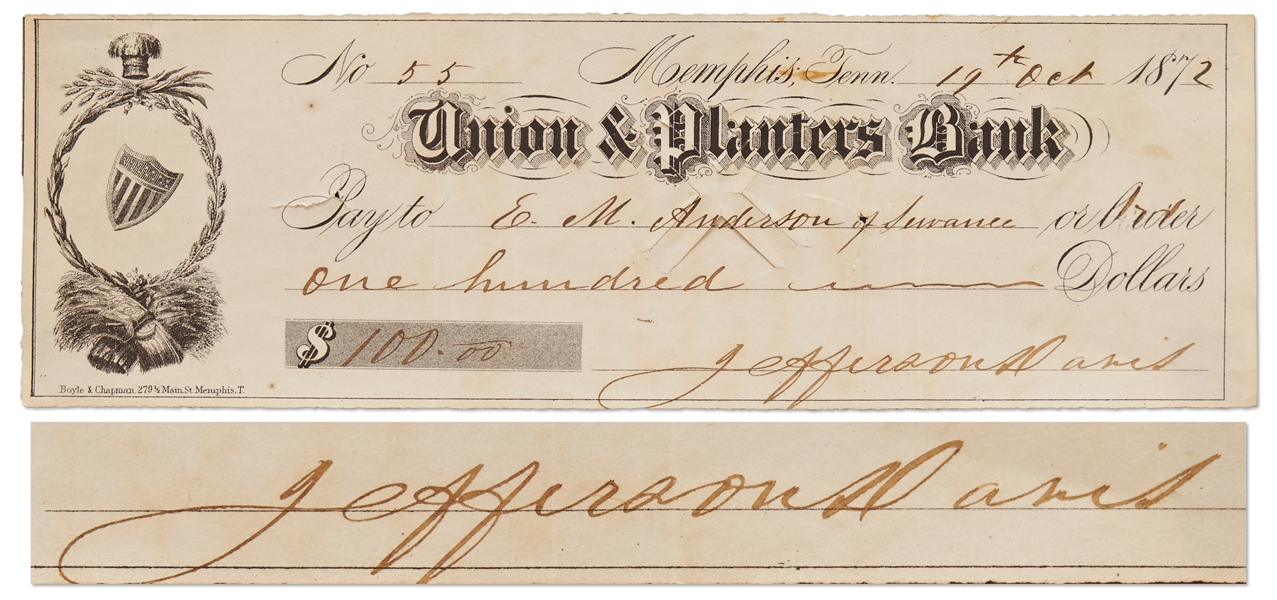 No 55 Memphis, Tenn. 19th Oct 1872
Union & Planters Bank
Pay to E. M. Anderson of Sewanee or Order
One hundred Dollars
$ 100.00
Jefferson Davis
Boyle & Chapman, 279½ Main St. Memphis, T.
Jefferson Davis